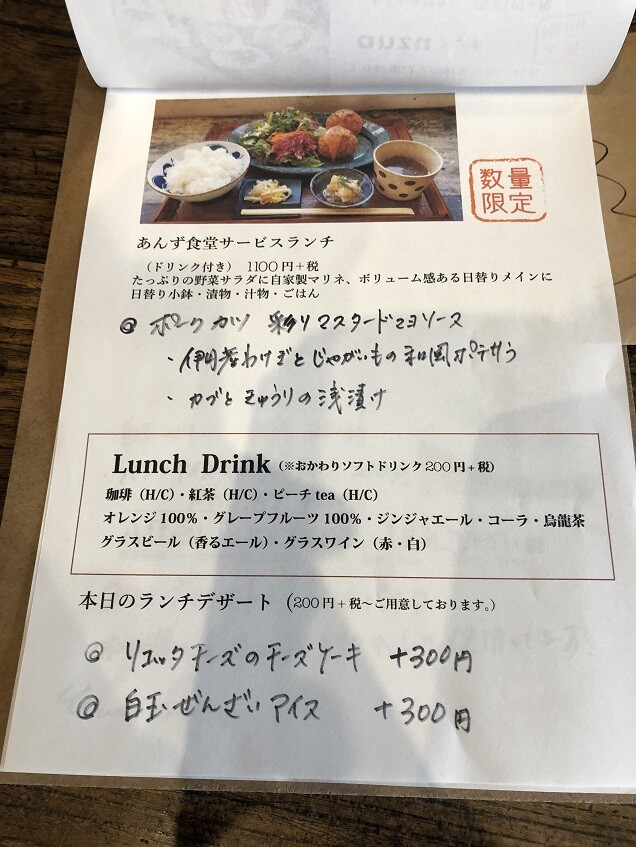 数量
限定
あんず食堂サービスランチ
（ドリンク付き） 1100円＋税
たっぷりの野菜サラダに自家製マリネ、ボリューム感ある日替りメインに
日替り小鉢・漬物・汁物・ごはん
◎ ポークカツ 彩りマスタードマヨソース
・伊円老わけぎとじゃがいもの和風ポテサラ
・カブときゅうりの浅漬け
Lunch Drink（※おかわりソフトドリンク200円＋税）
珈琲（H/C）・紅茶（H/C）・ピーチ tea（H/C）
オレンジ100%・グレープフルーツ100%・ジンジャエール・コーラ・烏龍茶
グラスビール（香るエール）・グラスワイン（赤・白）
本日のランチデザート （200円＋税〜ご用意しております。）
◎ リコッタチーズのチーズケーキ ＋300円
◎ 白玉ぜんざいアイス ＋300円